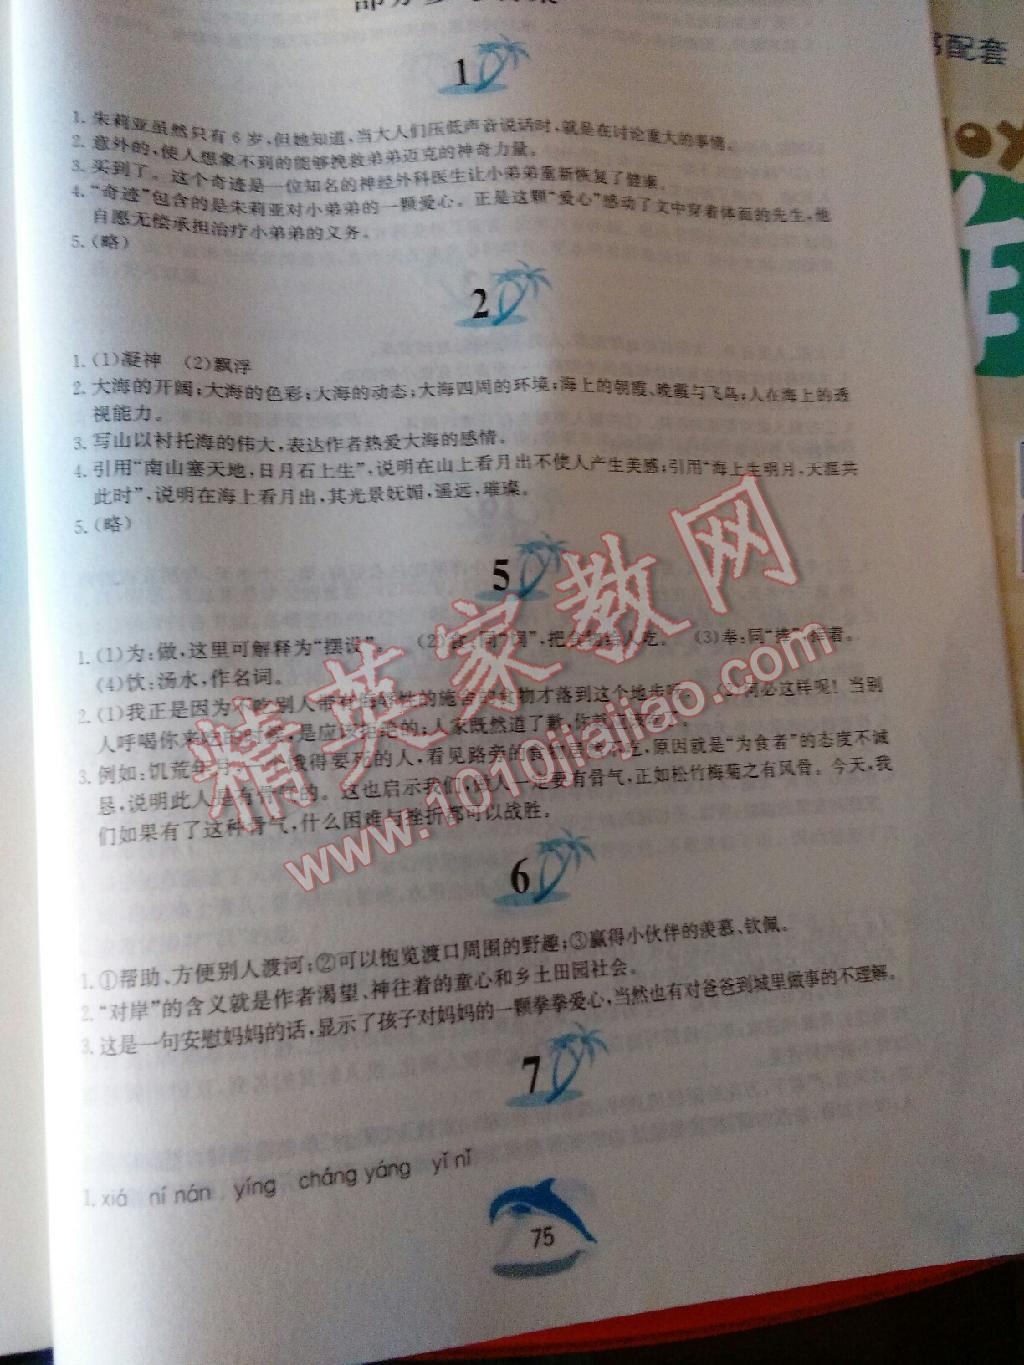 部分参考答案
1
1. 朱莉亚虽然只有6岁,但她知道,当大人们压低声音说话时,就是在讨论重大的事情。
2. 意外的,使人想象不到的能够挽救弟弟迈克的神奇力量。
3. 买到了。这个奇迹是一位知名的神经外科医生让小弟弟重新恢复了健康。
4. “奇迹”包含的是朱莉亚对小弟弟的一颗爱心。正是这颗“爱心”感动了文中穿着体面的先生,他
自愿无偿承担治疗小弟弟的义务。
5. (略)
2
1. (1)凝神 (2)飘浮
2. 大海的开阔;大海的色彩;大海的动态;大海四周的环境;海上的朝霞、晚霞与飞鸟;人在海上的透
视能力。
3. 写山以衬托海的伟大,表达作者热爱大海的感情。
4. 引用“南山塞天地,日月石上生”,说明在山上看月出不使人产生美感;引用“海上生明月,天涯共
此时”,说明在海上看月出,其光景妩媚,遥远,璀璨。
5. (略)
5
1. (1)为:做,这里可解释为“摆设”。 (2)食:同“饲”,把食物给人吃。 (3)奉:同“捧”,捧着。
(4)饮:汤水,作名词。
2. (1)我正是因为不吃别人带有侮辱性的施舍的食物才落到这个地步呀! (2)何必这样呢!当别
人呼喝你来吃的时候,是应该拒绝的;人家既然道了歉,你就
3. 例如:饥荒年月,一个饿得要死的人,看见路旁的食物 吃,原因就是“为食者”的态度不诚
恳,说明此人是有骨气的。这也启示我们,做人一定要有骨气,正如松竹梅菊之有风骨。今天,我
们如果有了这种骨气,什么困难与挫折都可以战胜。
6
1. ①帮助、方便别人渡河;②可以饱览渡口周围的野趣;③赢得小伙伴的羡慕、钦佩。
2. “对岸”的含义就是作者渴望、神往着的童心和乡土田园社会。
3. 这是一句安慰妈妈的话,显示了孩子对妈妈的一颗拳拳爱心,当然也有对爸爸到城里做事的不理解。
7
1. xiá ní nán yíng cháng yáng yǐ nǐ
75
精英家教网
www.1010jiajiao.com
配套